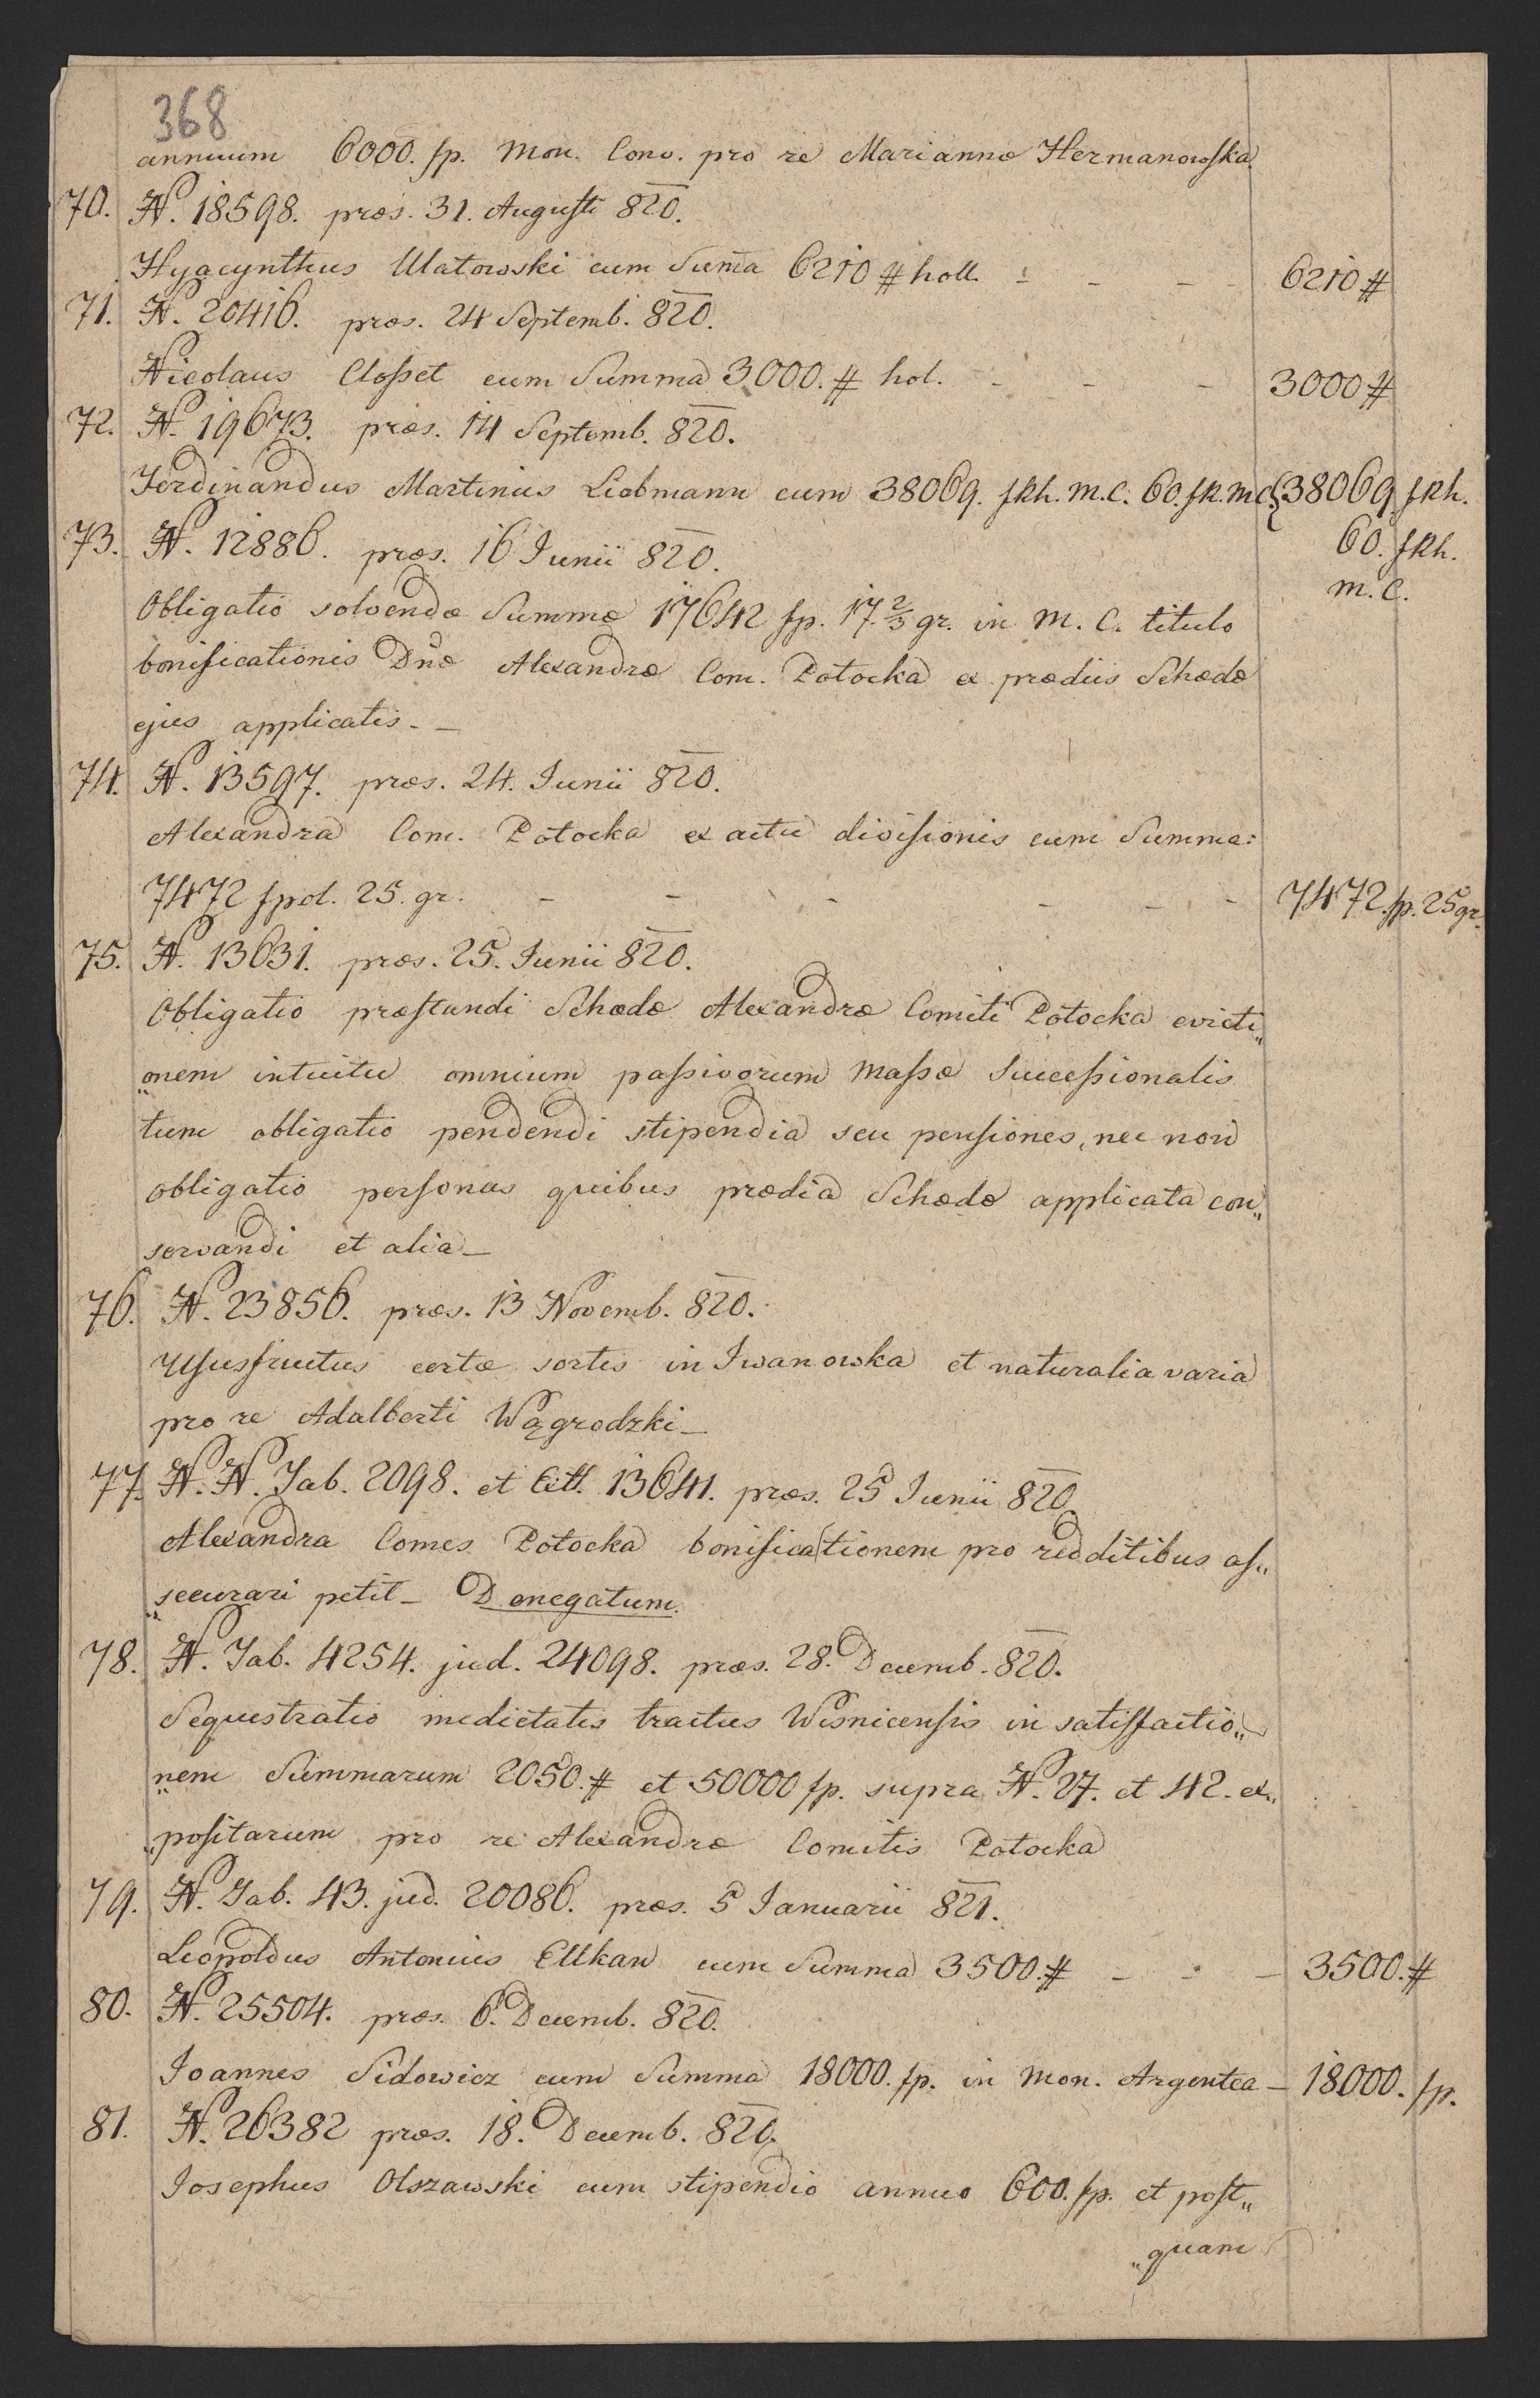 368
annuum 6000. fp. Mon. Conv. pro re Mariannæ Hermanowska
70. N. 18598. præs. 31. Augusti 820.
Hyacynthus Ulatowski cum Sum̄a 6210 # holl. - - - - 6210 #
71. N. 20416. præs. 24 Septemb. 820.
Nicolaus Closset cum Summa 3000. # hol. - - - 3000 #
72. N. 19673. præs. 14 Septemb. 820.
Ferdinandus Martinus Liebmann cum 38069. fRh. M.C. 60. fR. m.c. 38069 fRh.
60. fRh.
m.C.
73. N. 12886. præs. 16 Junii 820.
Obligatio solvendæ Summæ 17642 fp. 17 2/3 gr. in M. C. titulo
bonificationis Dnæ Alexandræ Com. Potocka ex prædiis Schedæ
ejus applicatis. -
74. N. 13597. præs. 24. Junii 820.
Alexandra Com. Potocka ex actu divisionis cum Summa:
7472 fpol. 25. gr. - - - - - - 7472. fp. 25 gr.
75. N. 13631. præs. 25. Junii 820.
Obligatio præstandi Schedæ Alexandræ Comiti Potocka evicti„
„onem intuitu omnium passivorum Massæ Successionalis
tum obligatio pendendi stipendia seu pensiones, nec non
obligatio personas quibus prædia Schedæ applicata con„
servandi et alia -
76. N. 23856. præs. 13 Novemb. 820.
Ususfructus certæ sortis in Iwanowska et naturalia varia
pro re Adalberti Wągrodzki -
77. N. N. Tab. 2098. et Citt. 13641. præs. 25 Junii 820.
Alexandra Comes Potocka bonificationem pro redditibus as„
„securari petit - Denegatum.
78. N. Tab. 4254. jud. 24098. præs. 28. Decemb. 820.
Sequestratio medietatis tractus Wisnicensis in satisfactio„
„nem Summarum 2050. # et 50000 fp. supra N. 27. et 42. ex„
„positarum pro re Alexandræ Comitis Potocka
79. N. Tab. 43. jud. 20086. præs. 5 Januarii 821.
Leopoldus Antonius Ellkan cum Summa 3500. # - - - 3500. #
80. N. 25504. præs. 6. Decemb. 820.
Joannes Sidowicz cum Summa 18000. fp. in Mon. Argentea - 18000. fp.
81. N. 26382 præs. 18. Decemb. 820.
Josephus Olszawski cum stipendio annuo 600. fp. et post„
„quam